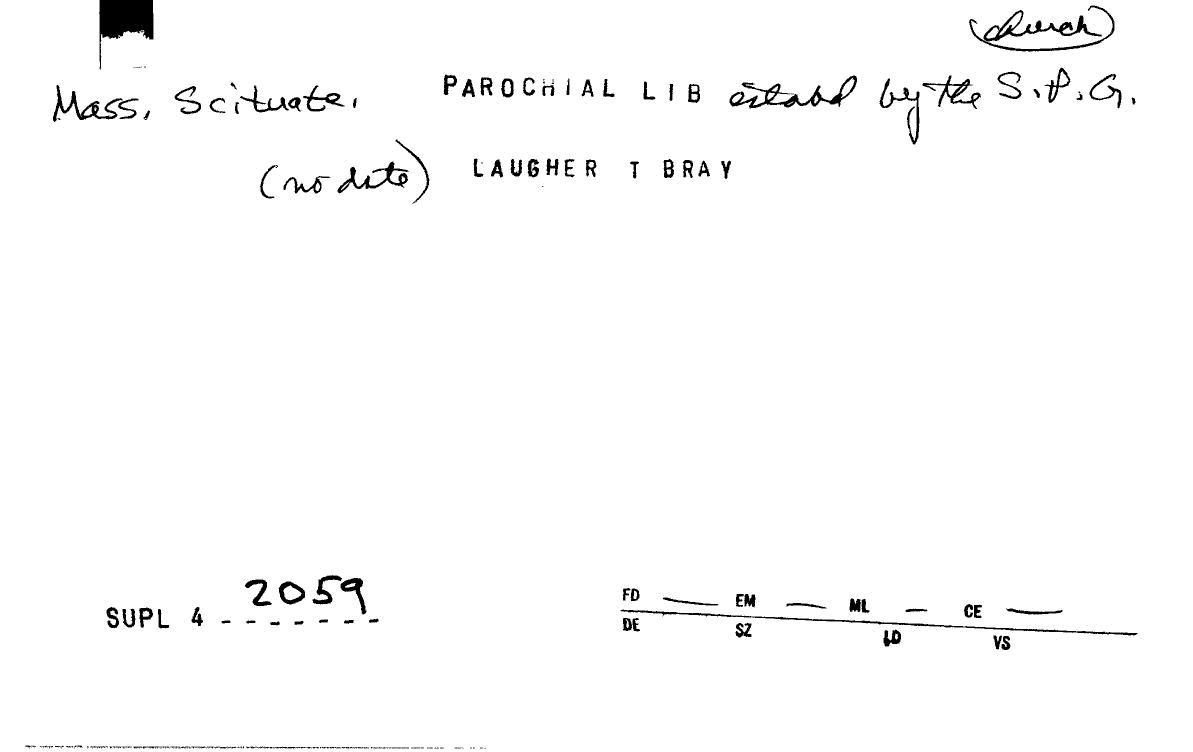 church
Mass, Scituate. PAROCHIAL LIB estabd by the S.P.G.
(no date) LAUGHER T BRAY
SUPL 4 2059
FD EM ML CE
DE SZ LD VS